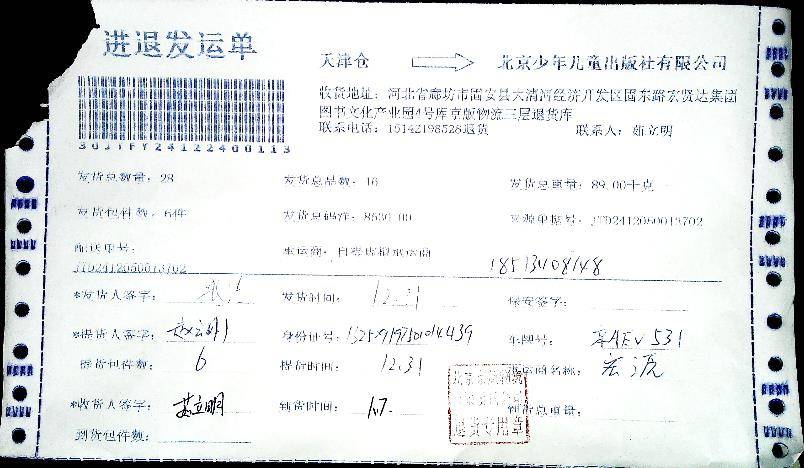 进退发运单
天津仓 北京少年儿童出版社有限公司
收货地址：河北省廊坊市固安县大清河经济开发区固东路宏贤达集团
图书文化产业园4号库京版物流三层退货库
联系电话：15142198528退货 联系人：茹立明
303TFY24122400113
发货总数量：28 发货总品数：16 发货总重量：89.00千克
发货包件数：6件 发货总码洋：8530.00 来源单据号：JTD2412050013702
配送单号： 承运商：
JTD2412050013702
18513408148
*发货人签字： 发货时间：12.31 保安签字：
*提货人签字： 身份证号： 车牌号：AEV531
提货包件数：6 提货时间：12.31 承运商名称：
*收货人签字：茹立明 到货时间：1.7. 到货总重量：
退货专用章
到货包件数：